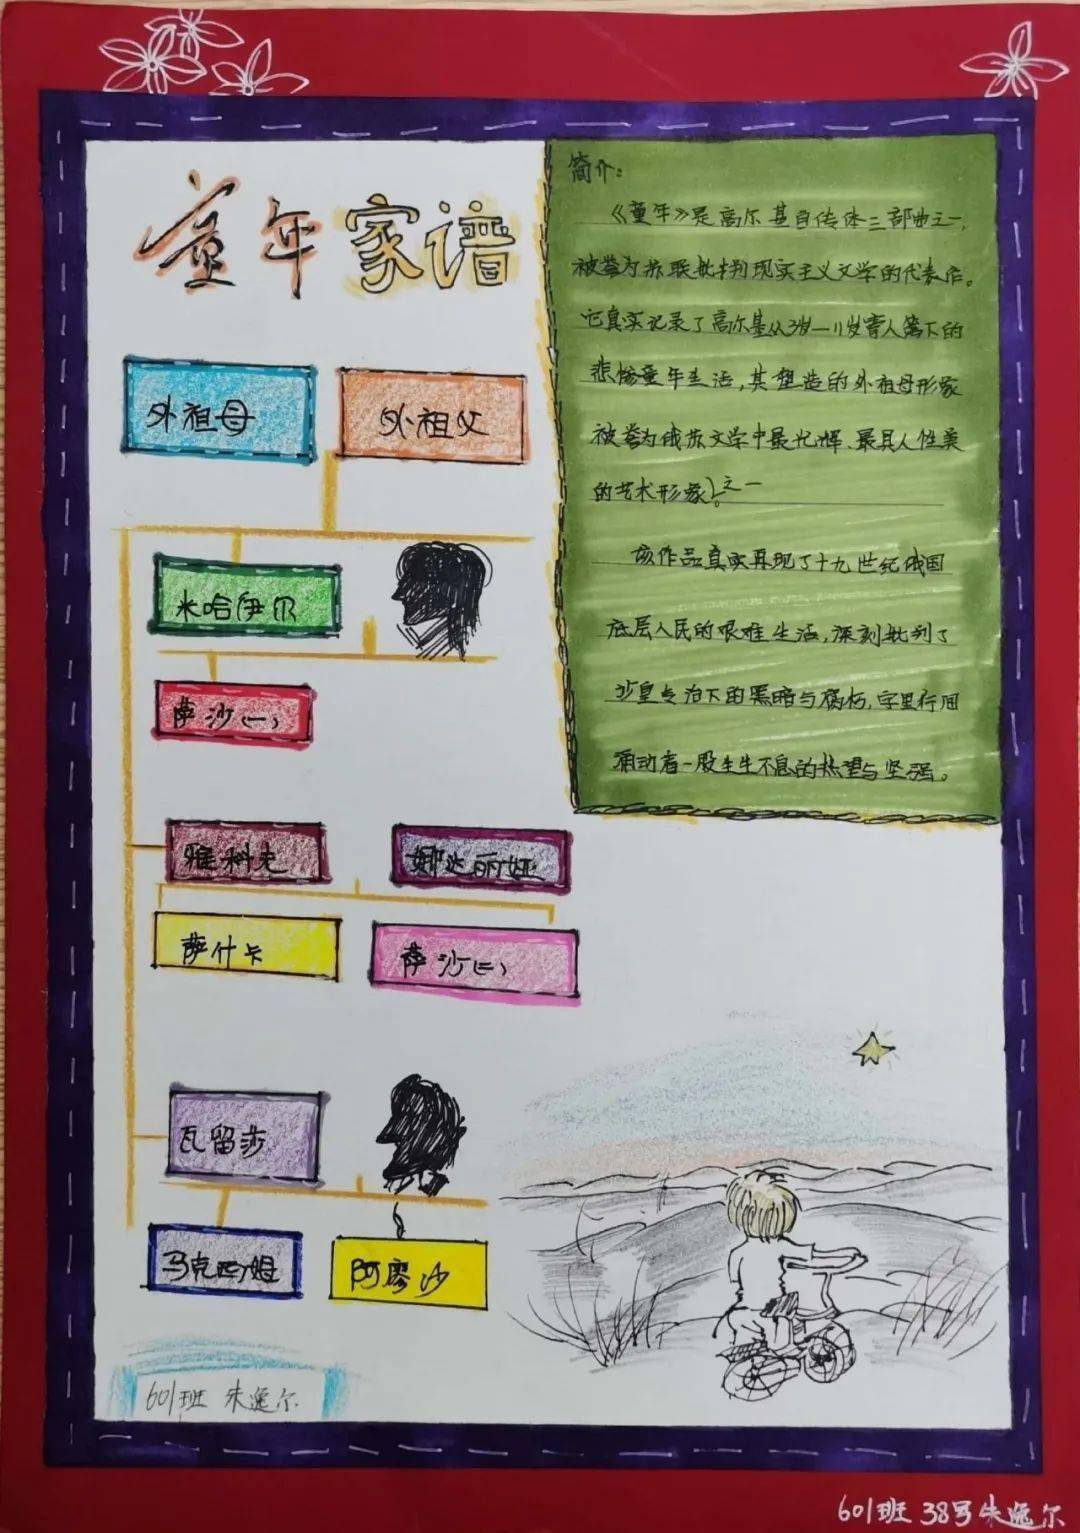 童年家谱
简介：
《童年》是高尔基自传体三部曲之一，
被誉为苏联批判现实主义文学的代表作。
它真实记录了高尔基从3岁—11岁寄人篱下的
悲惨童年生活，其塑造的外祖母形象
被誉为俄苏文学中最光辉、最具人性美
的艺术形象之一。
该作品真实再现了十九世纪俄国
底层人民的艰难生活，深刻批判了
沙皇专治下的黑暗与腐朽，字里行间
涌动着一股生生不息的热望与坚强。
外祖母
外祖父
米哈伊尔
萨沙(一)
雅科夫
娜达丽娅
萨什卡
萨沙(二)
瓦留莎
马克西姆
阿廖沙
601班 朱逸尔
601班 38号朱逸尔